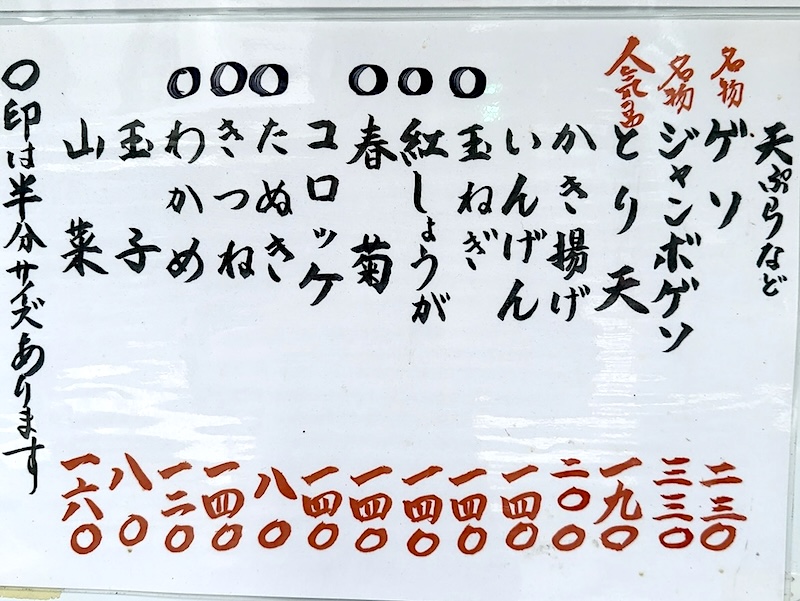 天ぷらなど
名物 ゲソ 二三〇
名物 ジャンボゲソ 三三〇
人気 とり天 一九〇
かき揚げ 二〇〇
いんげん 一四〇
〇 玉ねぎ 一四〇
〇 紅しょうが 一四〇
〇 春菊 一四〇
コロッケ 一四〇
〇 たぬき 八〇
〇 きつね 一四〇
〇 わかめ 一二〇
玉子 八〇
山菜 一六〇
〇印は半分サイズあります